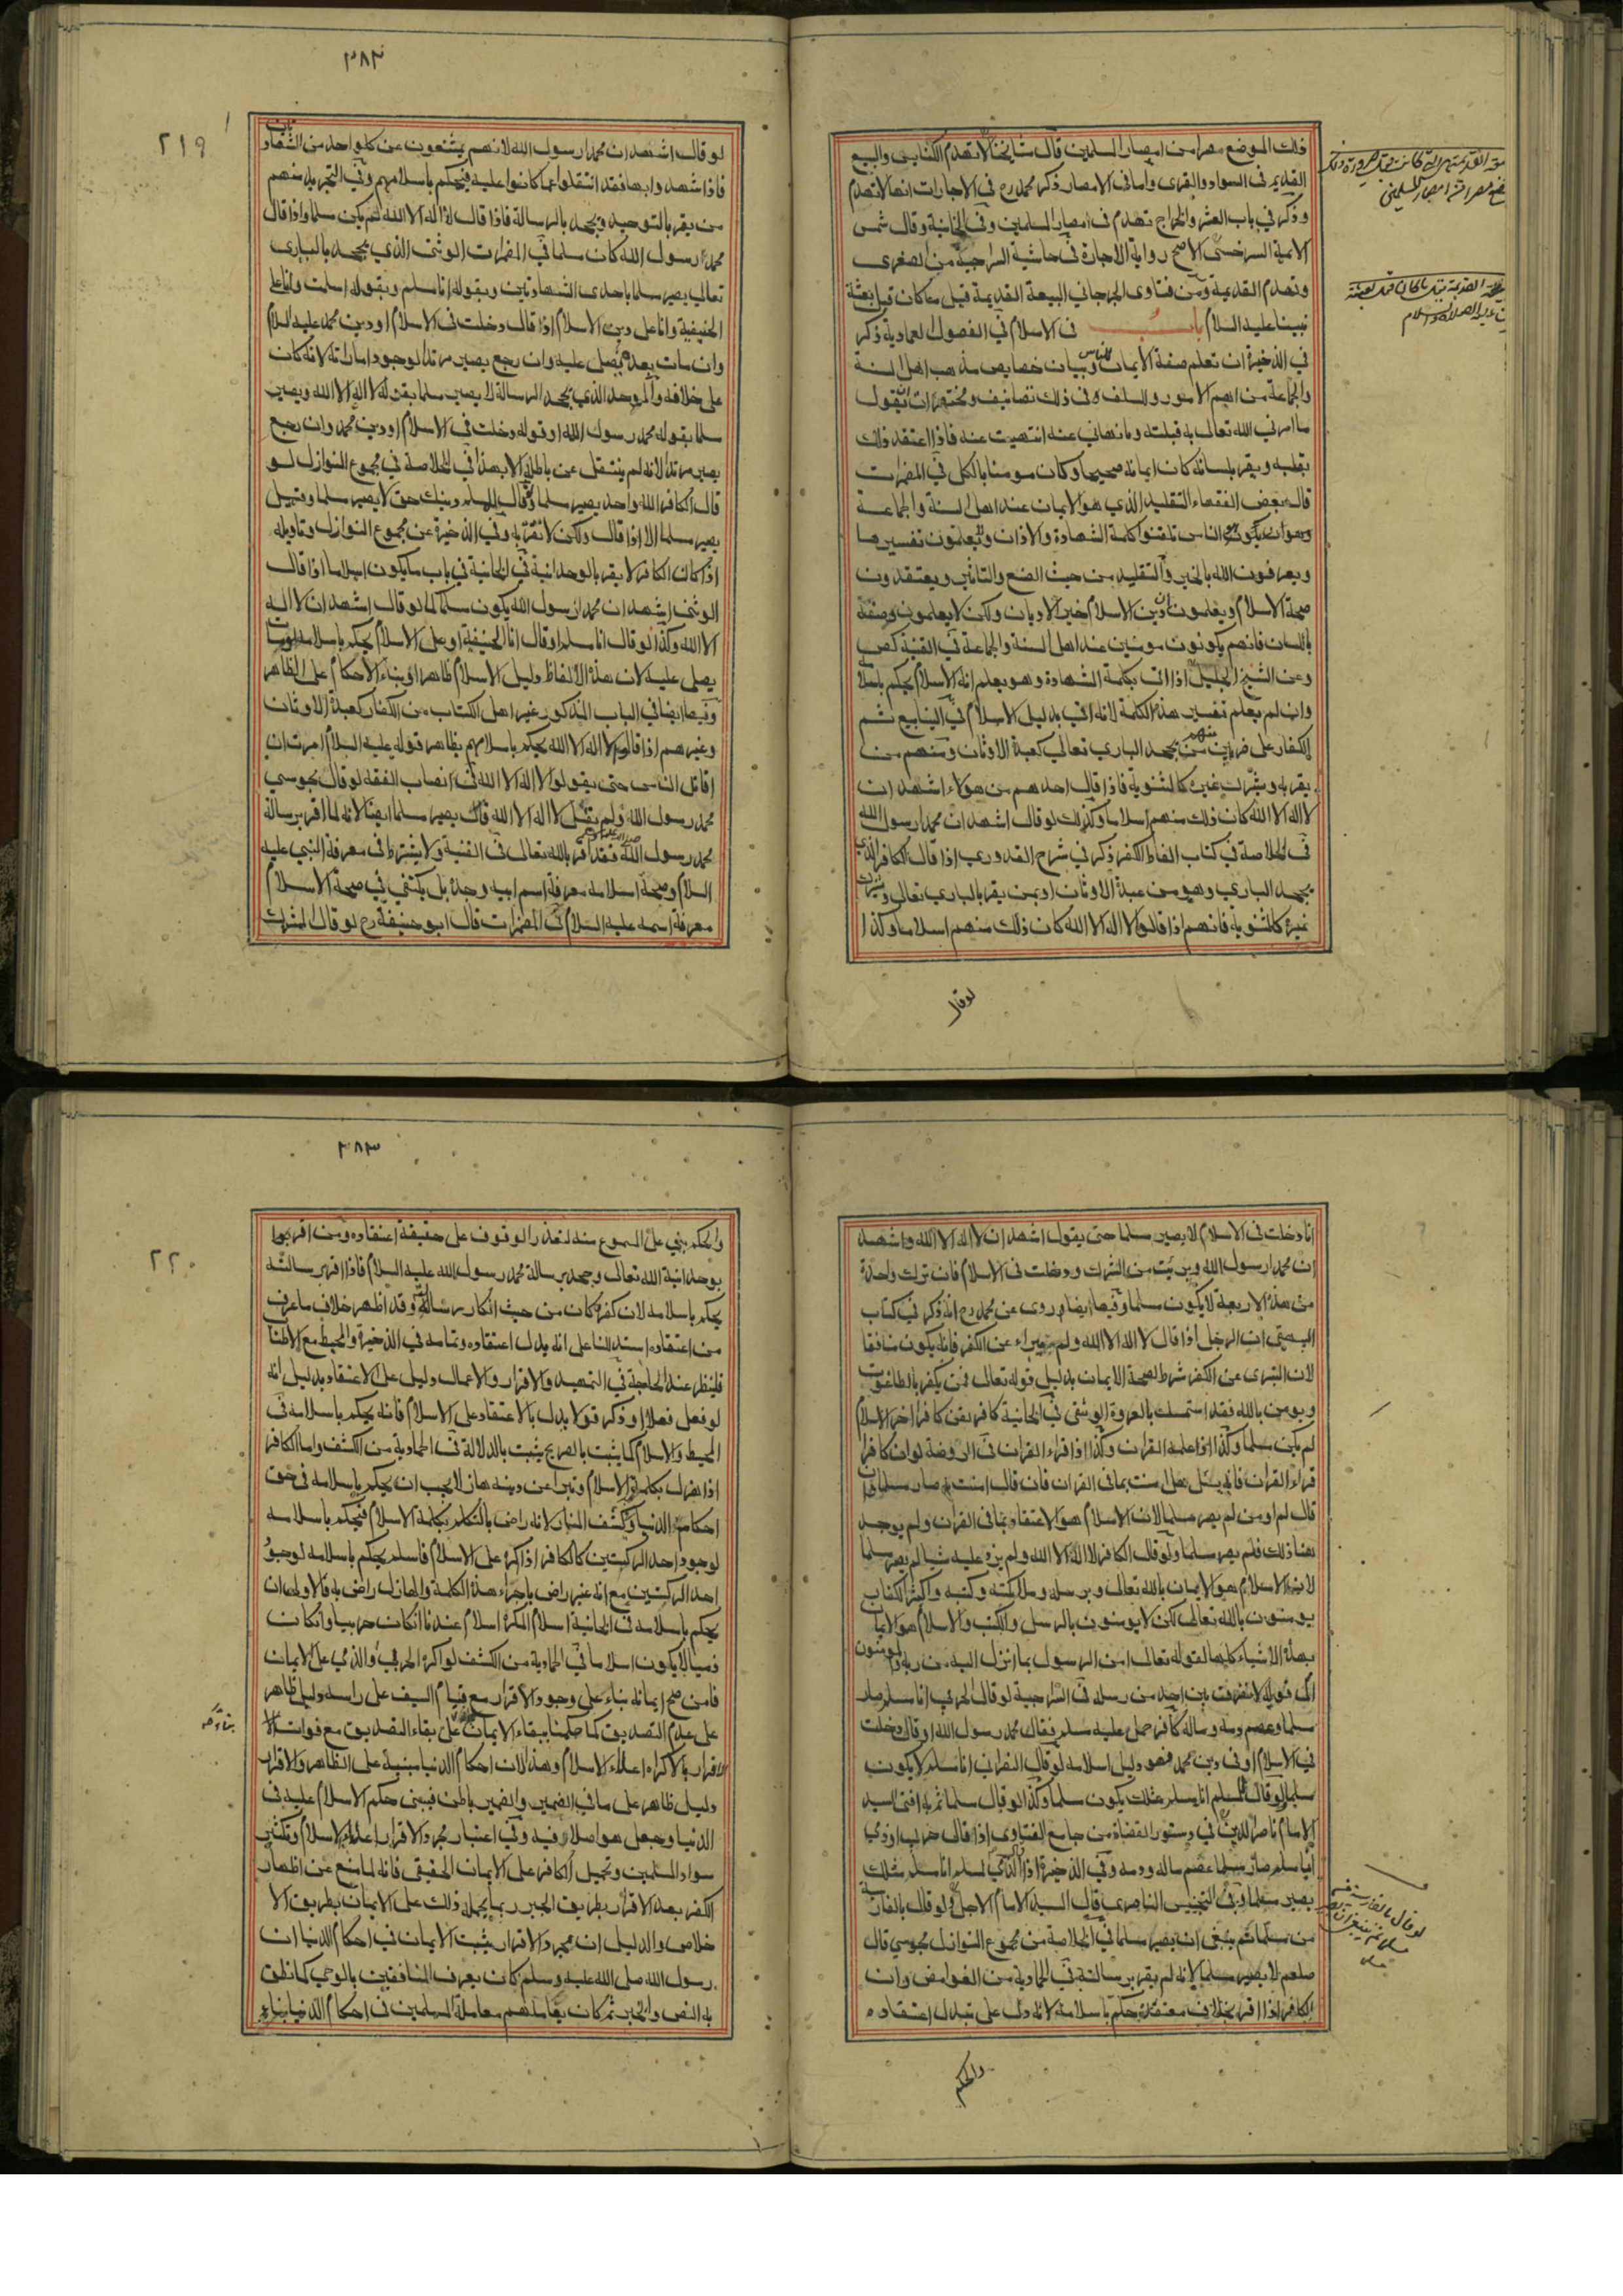 ذلك الموضع مصرا من امصار المسلمين قال مشايخنا لا تهدم الكنايس والبيع
القديم في السواد والقرى واما في الامصار ذكر محمد رح في الاجارات انها لا تهدم
وذكر في باب العشر والخراج تهدم في امصار المسلمين وفي الخانية وقال شمس
الايمة السرخسي الاصح رواية الاجارة في حاشية السراجية من الصغرى
وتهدم القديمة ومن فتاوى الجرجاني البيعة القديمة قيل ما كان قبل بعثة
نبينا عليه السلام باب في الاسلام في الفصول لعمادية ذكر
في الذخيرة ان تعلم صفة الايمان للناس وبيان خصايص مذهب اهل السنة
والجماعة من اهم الامور وللسلف في ذلك تصانيف ومختصرات ان تقول
ما امرني الله تعالى به قبلته وما نهاني عنه انتهيت عنه فاذا اعتقد ذلك
بقلبه ويقر بلسانه كان ايمانه صحيحا وكان مومنا بالكل في المضمرات
قال بعض الفقهاء التقليد الذي هو الايمان عند اهل السنة والجماعة
وهو ان يكون الناس تلقنوا كلمة الشهادة والاذان ويعلمون تفسيرها
ويعرفون الله بالخبر والتقليد من حيث الصنع والتاثير ويعتقدون
صحة الاسلام ويعلمون ان دين الاسلام خير الاديان ولكن لا يعلمون وصفه
باللسان فانهم يكونون مومنين عند اهل السنة والجماعة في القنية
وعن الشيخ الجليل اذا اتى بكلمة الشهادة وهو يعلم انه الاسلام يحكم باسلامه
وان لم يعلم تفسير هذه الكلمة لانه اتى بدليل الاسلام في الينابيع ثم
الكفار على ضربين منهم من يجحد الباري تعالى كعبدة الاوثان ومنهم من
يقر به ويشرك غيره كالثنوية فاذا قال احدهم من هولاء اشهد ان
لا اله الا الله كان ذلك منهم اسلاما وكذلك لو قال اشهد ان محمدا رسول الله
في الخلاصة في كتاب الفاظ الكفر ذكر في شرح القدوري اذا قال الكافر الذي
يجحد الباري وهو من عبدة الاوثان او ممن يقر بالباري تعالى ويشرك
غيره كالثنوية فانهم اذا قالوا لا اله الا الله كان ذلك منهم اسلاما وكذا
لو قال
٣٨٢
٢١٩
لو قال اشهد ان محمدا رسول الله لانهم يمتنعون عن كل واحد من الشهادتين
فاذا شهد وابها فقد انتقلوا عما كانوا عليه فيحكم باسلامهم وفي التجريد منهم
من يقر بالتوحيد ويجحد بالرسالة فاذا قال لا اله الا الله لم يكن مسلما واذا قال
محمد رسول الله كان مسلما في المضمرات الوثني الذي يجحد بالبارى
تعالى يصير مسلما باحدى الشهادتين وبقوله انا مسلم وبقوله اسلمت وانا على
الحنيفية وانا على دين الاسلام اذا قال دخلت في الاسلام او دين محمد عليه السلام
وان مات بعده يصلى عليه وان رجع يصير مرتدا لوجود امارته لانه كان
على خلافه والموحد الذي يجحد الرسالة لا يصير مسلما بقوله لا اله الا الله ويصير
مسلما بقوله محمد رسول الله او قوله دخلت في الاسلام او دين محمد وان رجع
يصير مرتدا لانه لم ينتقل عن باطله الا بهذا في الخلاصة في مجموع النوازل لو
قال الكافر الله واحد يصير مسلما ولو قال للمسلم دينك حق لا يصير مسلما وقيل
يصير مسلما الا اذا قال ولكن لا نقر به وفي الذخيرة عن مجموع النوازل وتاويله
اذا كان الكافر لا يقر بالوحدانية في الخانية في باب ما يكون اسلاما اذا قال
الوثني اشهد ان محمدا رسول الله يكون مسلما كما لو قال اشهد ان لا اله
الا الله وكذا لو قال انا مسلم او قال انا الحنيفية او على الاسلام يحكم باسلامه لو مات
يصلى عليه لان هذه الالفاظ دليل الاسلام ظاهرا وبناء الاحكام على الظاهر
وفيها ايضا في الباب المذكور غير اهل الكتاب من الكفار كعبدة الاوثان
وغيرهم اذا قالوا لا اله الا الله يحكم باسلامهم بظاهر قوله عليه السلام امرت ان
اقاتل الناس حتى يقولوا لا اله الا الله في انصاب الفقه لو قال مجوسي
محمد رسول الله ولم يقل لا اله الا الله قال يصير مسلما ايضا لانه لما اقر برسالة
محمد رسول الله فقد اقر بالله تعالى في القنية ولا يشترط في معرفة النبي عليه
السلام وصحة اسلامه معرفة اسم ابيه وجده بل يكتفي في صحة الاسلام
معرفة اسمه عليه السلام في المضمرات قال ابو حنيفة رح لو قال المشرك
انا دخلت في الاسلام لا يصير مسلما حتى يقول اشهد ان لا اله الا الله واشهد
ان محمدا رسول الله وبرئت من الشرك ودخلت في الاسلام فان ترك واحدة
من هذه الاربعة لا يكون مسلما وفيها ايضا روى عن محمد رح انه ذكر في كتاب
ان الرجل اذا قال لا اله الا الله ولم يتبراء عن الكفر فانه يكون منافقا
لان التبرى عن الكفر شرط لصحة الايمان بدليل قوله تعالى فمن يكفر بالطاغوت
ويومن بالله فقد استمسك بالعروة الوثقى في الخانية كافر لقن كافرا اخر الاسلام
لم يكن مسلما وكذا اذا علمه القران وكذا اذا قراء القران في الروضة لو ان كافرا
قراء القران فانه يسئل هل امنت بما في القران فان قال امنت به صار مسلما وان
قال لم اومن لم يصر مسلما لان الاسلام هو الاعتقاد بما في القران ولم يوجد
هنا ذلك فلم يصر مسلما ولو قال الكافر لا اله الا الله ولم يزد عليه شيا لم يصر مسلما
لان الاسلام هو الايمان بالله تعالى وبرسله وملائكته وكتبه واكثر الكفار
يومنون بالله تعالى لكن لا يومنون بالرسل والكتب والاسلام هو الايمان
بهذه الاشياء كلها لقوله تعالى امن الرسول بما انزل اليه من ربه والمومنون
الى قوله لا نفرق بين احد من رسله في السراجية لو قال الحربي انا مسلم صار
مسلما وعصم دمه وماله كافر حمل عليه مسلم فقال محمد رسول الله او قال دخلت
في الاسلام او في دين محمد فهو دليل اسلامه لو قال النصراني انا مسلم لا يكون
مسلما لو قال لمسلم انا مسلم مثلك يكون مسلما وكذا لو قال مسلما ثم به افتى السيد
الامام ناصر الدين في دستور القضاة من جامع الفتاوى اذا قال حربي او ذمي
انا مسلم صار مسلما عصم ماله ودمه وفي الذخيرة اذا قال الذمي لمسلم انا مسلم مثلك
يصير مسلما وفي التجنيس الناصرى قال السيد الامام الاجل لو قال بالفارسية
من مسلما ثم ينبغي ان يصير مسلما في الخلاصة من مجموع النوازل مجوسي قال
صلعم لا يصير مسلما لانه لم يقر برسالته في الحمادية من الغوامض وان
الكافر اذا اقر بخلاف معتقده حكم باسلامه لانه دل على تبدل اعتقاده
والحكم
٣٨٣
٢٢٠
والحكم يبنى على المسموع منه لتعذر الوقوف على حقيقة اعتقاده ومن اقر
بوحدانية الله تعالى وجحد برسالة محمد رسول الله عليه السلام فاذا اقر برسالته
يحكم باسلامه لان كفره كان من حيث انكار رسالته وقد اظهر خلاف ما عرف
من اعتقاده استدللنا على انه بدل اعتقاده وتمامه في الذخيرة والمحيط مع الاطناب
فلينظر عند الحاجة في التمهيد والاقرار والاعمال دليل على الاعتقاد بدليل انه
لو فعل فعلا او ذكر قولا يدل بالاعتقاد على الاسلام فانه يحكم باسلامه في
المحيط والاسلام كما يثبت بالصريح يثبت بالدلالة في الحمادية من الكشف واما الكافر
اذا هزل بكلمة الاسلام وتبرا عن دينه هازلا يجب ان يحكم باسلامه في حق
احكام الدنيا وكشف المنار لانه راض بالتكلم بكلمة الاسلام فيحكم باسلامه
لوجود احد الركنين كالكافر اذا اكره على الاسلام فاسلم يحكم باسلامه لوجود
احد الركنين مع انه غير راض باجراء هذه الكلمة والهازل راض به فالاولى ان
يحكم باسلامه في الخانية اسلام المكره اسلام عندنا ان كان حربيا وان كان
ذميا لا يكون اسلاما في الحمادية من الكشف لو اكره الحربي والذمي على الايمان
فامن صح ايمانه بناء على وجود الاقرار مع قيام السيف على راسه دليل ظاهر
على عدم التصديق كما حكمنا ببقاء الايمان على بقاء التصديق مع فوات الا
الاقرار بالاكراه اعلاء الاسلام وهذا لان احكام الدنيا مبنية على الظاهر والاقرار
دليل ظاهر على ما في الضمير والضمير باطن فيبنى حكم الاسلام عليه في
الدنيا وجعل هو اصلا فيه وفي اعتبار مجرد الاقرار اعلاء الاسلام وتكثير
سواد المسلمين وتحميل الكافر على الايمان الحقيقي فانه لما منع عن اظهار
الكفر بعد الاقرار بطريق الجبر ربما يحمله ذلك على الايمان بطريق الا
خلاص والدليل ان مجرد الاقرار يثبت الايمان في احكام الدنيا ان
رسول الله صلى الله عليه وسلم كان يعرف المنافقين بالوحي كما نطق
به النص والخبر ثم كان يعاملهم معاملة المسلمين في احكام الدنيا بناء